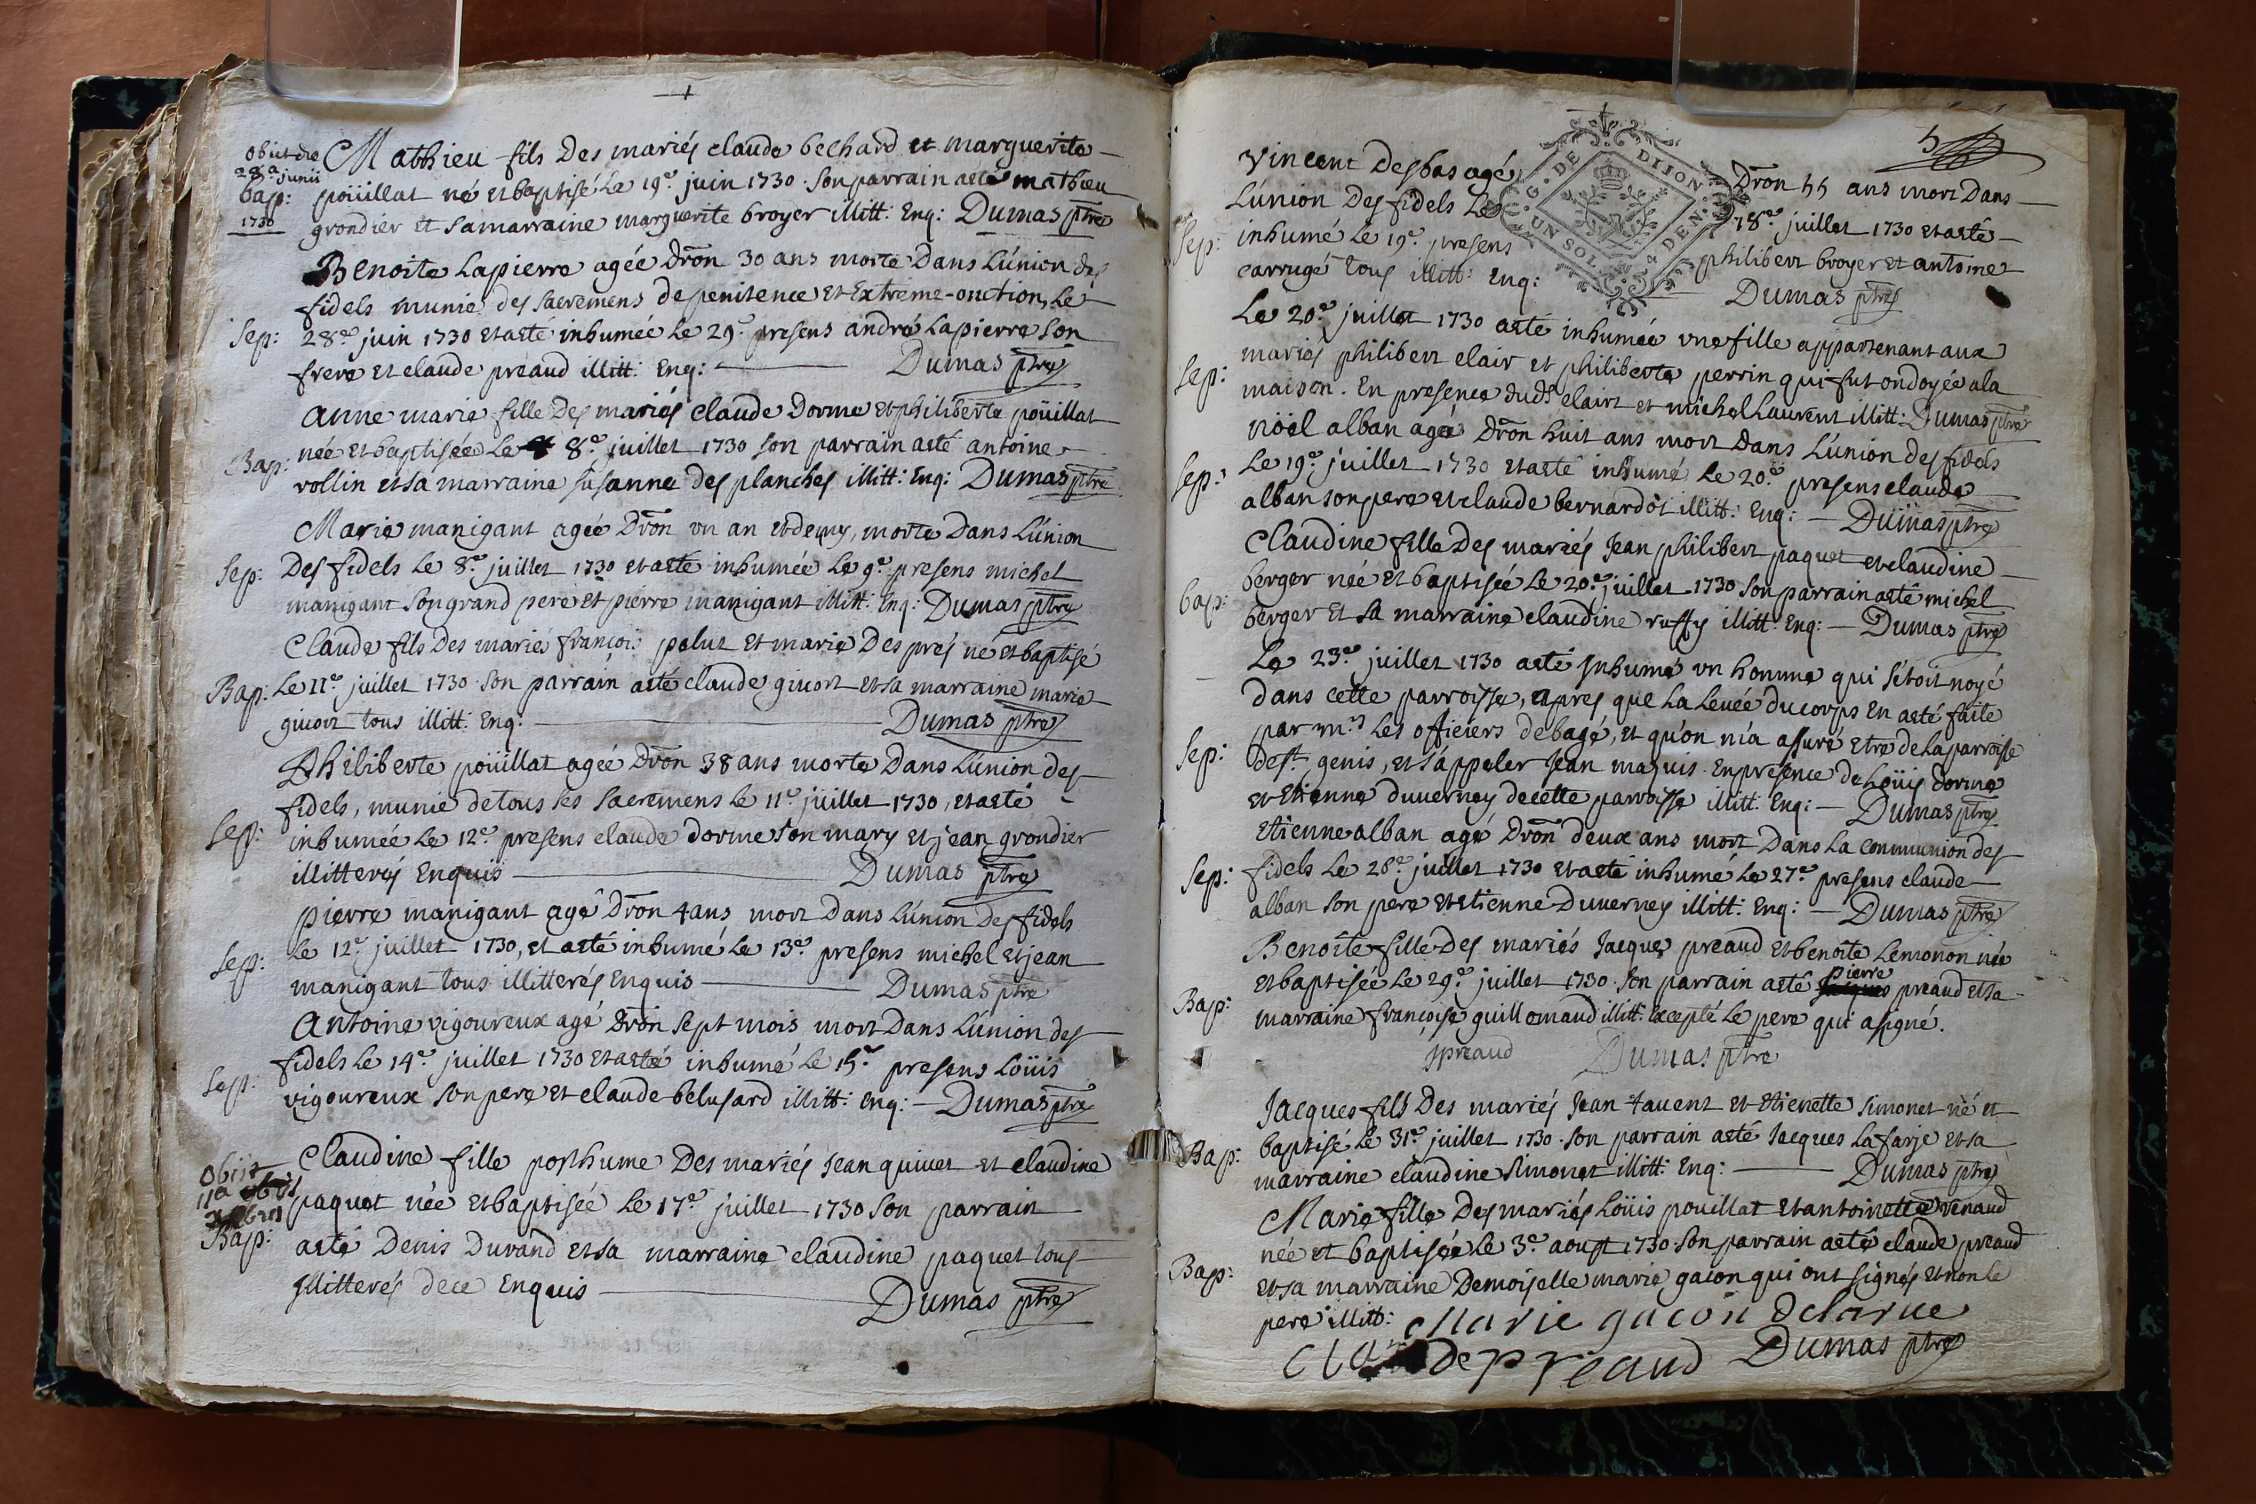 obiit die
28a junii
bap:
1730
Mathieu fils Des mariés claude bechard et marguerite
poüillat né et baptisé Le 19e. juin 1730. son parrain aeté mathieu
grondier et sa marraine marguerite broyer illitt: Enq: Dumas ptre
Benoite Lapierre agée Dron 30 ans morte Dans L'union des
fidels munie des sacremens de penitence et Extreme-onction, Le
Sep: 28e. juin 1730 et aeté inhumée Le 29e. presens andré Lapierre son
frere et claude preaud illitt: Enq: Dumas ptre
anne marie fille Des mariés claude Dorme et philiberte poüillat
Bap: née et baptisée Le 8e. juillet 1730 son parrain aeté antoine
vollin et sa marraine susanne des planches illitt: Enq: Dumas ptre
Marie manigant agée Dron un an et demy, morte Dans L'union
Sep: Des fidels Le 8e. juillet 1730 et aeté inhumée Le 9e. presens michel
manigant son grand pere et pierre manigant illitt: Enq: Dumas ptre
Claude fils Des mariés françois palut et marie Des prés né et baptisé
Bap: Le 11e. juillet 1730. son parrain aeté claude givort et sa marraine marie
givort tous illitt: Enq: Dumas ptre
Philiberte poüillat agée Dron 38 ans morte Dans L'union des
fidels, munie de tous les sacremens Le 11e. juillet 1730, et aeté
Sep: inhumée Le 12e. presens claude dorme son mary et jean grondier
illitterés Enquis Dumas ptre
pierre manigant agé Dron 4 ans mort Dans L'union Des fidels
Sep: Le 12e. juillet 1730, et aeté inhumé Le 13e. presens michel et jean
manigant tous illitterés Enquis Dumas ptre
Antoine vigoureux agé Dron sept mois mort Dans L'union des
Sep: fidels Le 14e. juillet 1730 et aeté inhumé Le 15e. presens Loüis
vigoureux son pere et claude belusard illitt: Enq: Dumas ptre
Obiit
11a
Bap:
Claudine fille posthume Des mariés Jean quivet et claudine
paquet née et baptisée Le 17e. juillet 1730 son parrain
aeté Denis Durand et sa marraine claudine paquet tous
illitterés de ce Enquis Dumas ptre
G. DE DIJON
UN SOL DEN.
Vincent Desbas agé Dron 55 ans mort Dans
L'union Des fidels Le 18e. juillet 1730 et aeté
Sep: inhumé Le 19e. presens philibert broyer et antoine
carrugé tous illitt: Enq: Dumas ptre
Le 20e. juillet 1730 aeté inhumée une fille appartenant aux
Sep: mariés philibert clair et philiberte perrin qui fut ondoyée a la
maison. En presence dudt clairt et michel Laurent illitt: Dumas ptre
Nöel alban agé Dron huit ans mort Dans L'union des fidels
Sep: Le 19e. juillet 1730 et aeté inhumé Le 20e. presens claude
alban son pere et claude bernardot illitt: Enq: Dumas ptre
Claudine fille Des mariés Jean philibert paquet et claudine
bap: berger née et baptisée Le 20e. juillet 1730 son parrain aeté michel
berger et sa marraine claudine ruffy illitt: Enq: Dumas ptre
Le 23e. juillet 1730 aeté Inhumé un homme qui s'étoit noyé
dans cette parroisse, apres que La Levée du corps En aeté faite
Sep: par mrs Les officiers de bagé, et qu'on m'a assuré etre de La parroisse
de st. genis, et s'appeler Jean maguis. En presence de Loüis dorme
et Etienne duverney de cette parroisse illitt: Enq: Dumas ptre
Etienne alban agé Dron deux ans mort Dans La communion des
Sep: fidels Le 28e. juillet 1730 et aeté inhumé Le 27e. presens claude
alban son pere et Etienne Duverney illitt: Enq: Dumas ptre
Benoite fille Des mariés Jacques preaud et benoite Lemonon née
et baptisée Le 29e. juillet 1730. son parrain aeté pierre preaud et sa
Bap: marraine françoise guillomaud illitt: Excepté Le pere qui a signé.
jpreaud Dumas ptre
Jacques fils Des mariés Jean tavent et Etienette simonet né et
Bap: baptisé Le 31e. juillet 1730. son parrain aeté Jacques Lafarje et sa
marraine claudine simonet illitt: Enq: Dumas ptre
Marie fille Des mariés Loüis pouillat et antoinette renaud
née et baptisée Le 3e. aoust 1730. son parrain aeté claude preaud
Bap: et sa marraine Demoiselle marie gacon qui ont signés et non le
pere illitt: Marie gacon delarue
Claude Preaud Dumas ptre